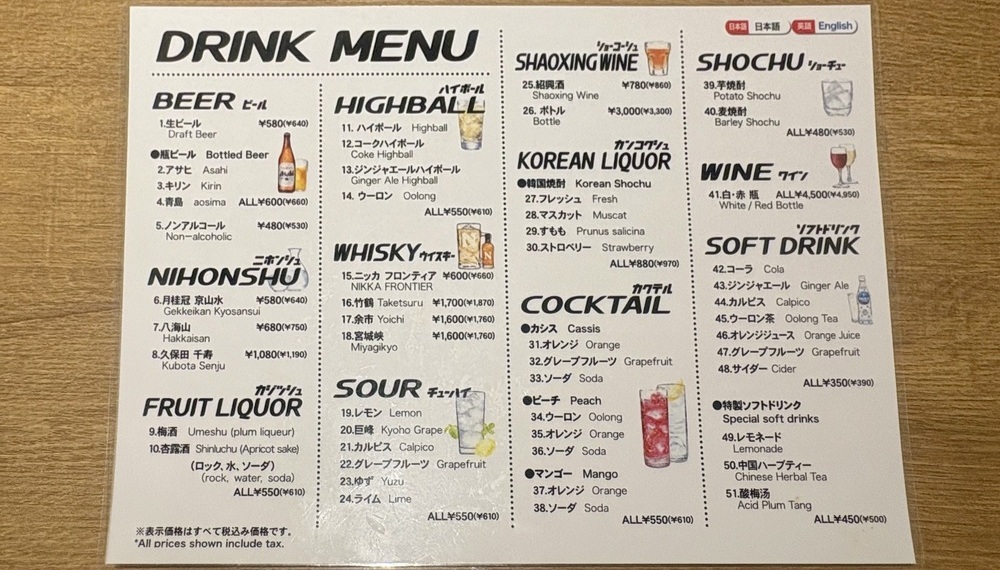 DRINK MENU
日本語 日本語 英語 English
BEER ビール
1.生ビール ¥580(¥640)
Draft Beer
●瓶ビール Bottled Beer
2.アサヒ Asahi
3.キリン Kirin
4.青島 aosima ALL¥600(¥660)
5.ノンアルコール ¥480(¥530)
Non-alcoholic
ニホンシュ
NIHONSHU
6.月桂冠 京山水 ¥580(¥640)
Gekkeikan Kyosansui
7.八海山 ¥680(¥750)
Hakkaisan
8.久保田 千寿 ¥1,080(¥1,190)
Kubota Senju
カジツシュ
FRUIT LIQUOR
9.梅酒 Umeshu (plum liqueur)
10.杏露酒 Shinluchu (Apricot sake)
(ロック、水、ソーダ)
(rock, water, soda)
ALL¥550(¥610)
※表示価格はすべて税込み価格です。
*All prices shown include tax.
ハイボール
HIGHBALL
11. ハイボール Highball
12.コークハイボール
Coke Highball
13.ジンジャエールハイボール
Ginger Ale Highball
14. ウーロン Oolong
ALL¥550(¥610)
WHISKY ウイスキー
15.ニッカ フロンティア ¥600(¥660)
NIKKA FRONTIER
16.竹鶴 Taketsuru ¥1,700(¥1,870)
17.余市 Yoichi ¥1,600(¥1,760)
18.宮城峡 ¥1,600(¥1,760)
Miyagikyo
SOUR チューハイ
19.レモン Lemon
20.巨峰 Kyoho Grape
21.カルピス Calpico
22.グレープフルーツ Grapefruit
23.ゆず Yuzu
24.ライム Lime
ALL¥550(¥610)
ショーコーシュ
SHAOXING WINE
25.紹興酒 ¥780(¥860)
Shaoxing Wine
26. ボトル ¥3,000(¥3,300)
Bottle
カンコクシュ
KOREAN LIQUOR
●韓国焼酎 Korean Shochu
27.フレッシュ Fresh
28.マスカット Muscat
29.すもも Prunus salicina
30.ストロベリー Strawberry
ALL¥880(¥970)
カクテル
COCKTAIL
●カシス Cassis
31.オレンジ Orange
32.グレープフルーツ Grapefruit
33.ソーダ Soda
●ピーチ Peach
34.ウーロン Oolong
35.オレンジ Orange
36.ソーダ Soda
●マンゴー Mango
37.オレンジ Orange
38.ソーダ Soda
ALL¥550(¥610)
SHOCHU ショーチュー
39.芋焼酎
Potato Shochu
40.麦焼酎
Barley Shochu
ALL¥480(¥530)
WINE ワイン
41.白・赤 瓶 ALL¥4,500(¥4,950)
White / Red Bottle
ソフトドリンク
SOFT DRINK
42.コーラ Cola
43.ジンジャエール Ginger Ale
44.カルピス Calpico
45.ウーロン茶 Oolong Tea
46.オレンジジュース Orange Juice
47.グレープフルーツ Grapefruit
48.サイダー Cider
ALL¥350(¥390)
●特製ソフトドリンク
Special soft drinks
49.レモネード
Lemonade
50.中国ハーブティー
Chinese Herbal Tea
51.酸梅汤
Acid Plum Tang
ALL¥450(¥500)